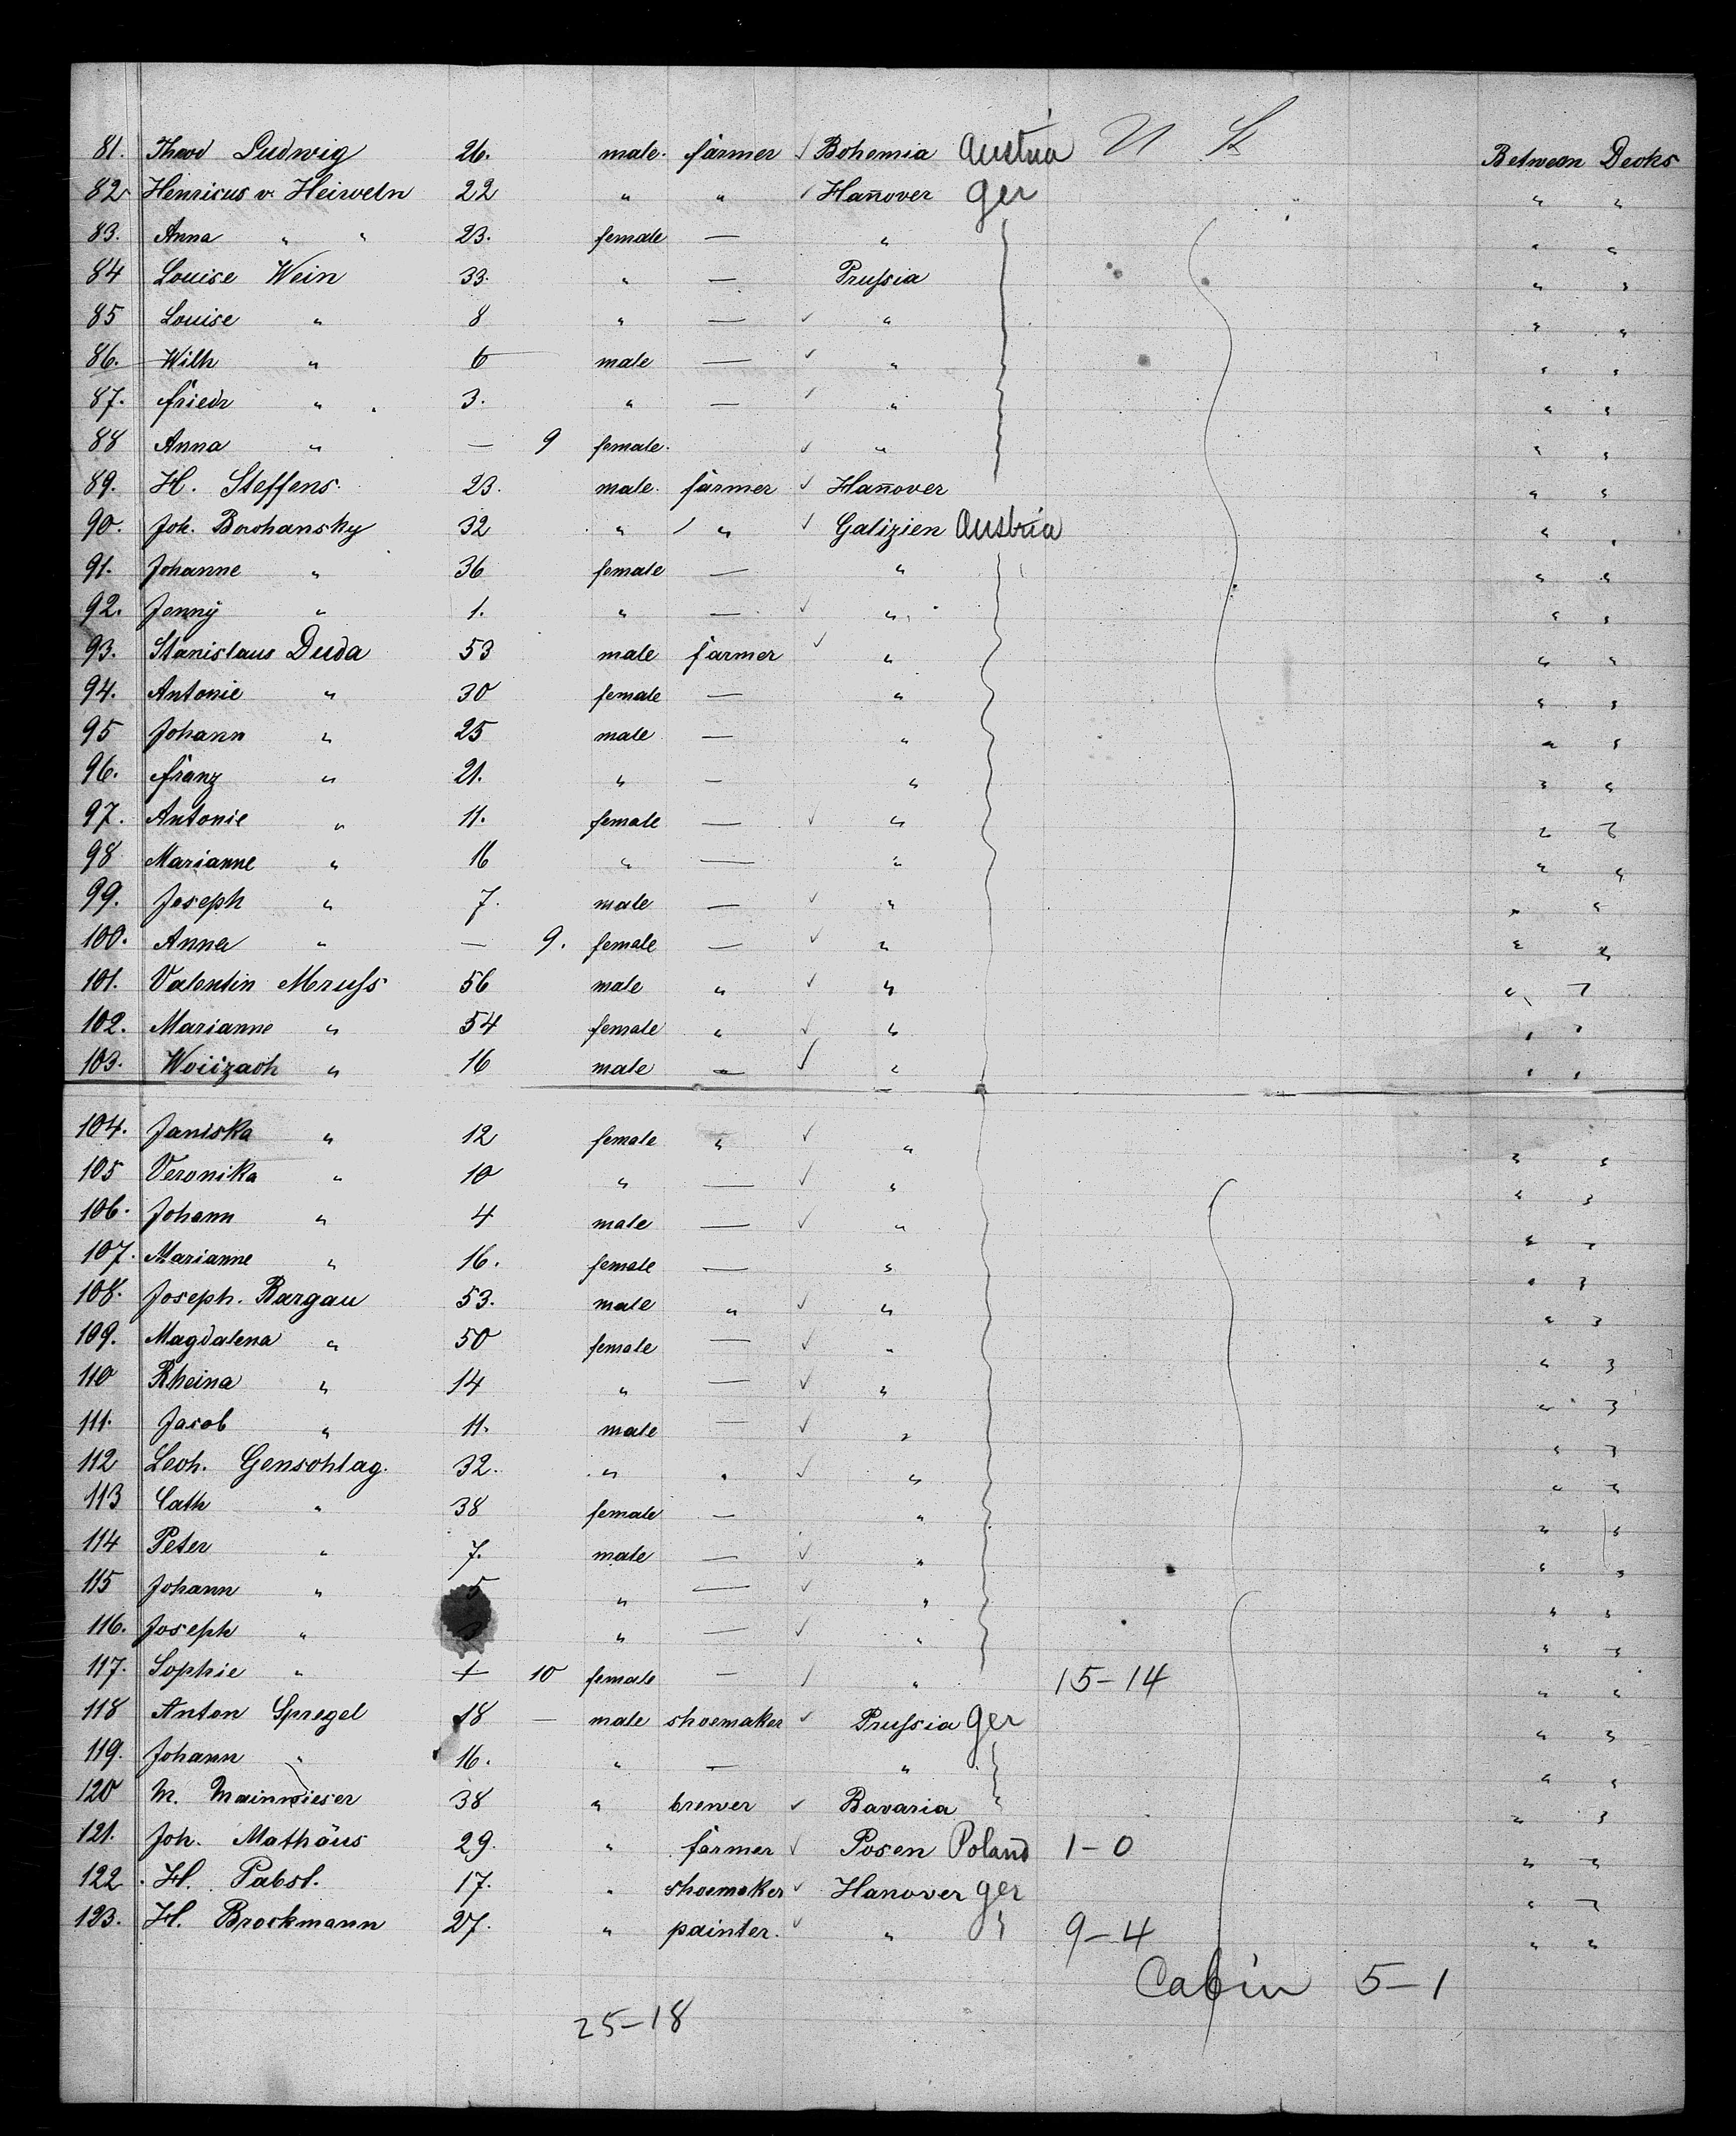 81. Theod Ludwig 26. male. farmer ✓ Bohemia Austria U St Between Decks
82 Henricus v. Heiweln 22 " " ✓ Hannover Ger " "
83. Anna " " 23. female — " " "
84 Louise Wein 33. " — Prussia " "
85 Louise " 8 " — ✓ " " "
86. Wilh " 6 male — ✓ " " "
87. Friedr " 3. " — ✓ " " "
88 Anna " — 9 female. ✓ " " "
89. H. Steffens. 23. male. farmer ✓ Hannover " "
90. Joh. Borchansky 32 " " ✓ Galizien Austria " "
91. Johanne " 36 female — " " "
92. Jenny " 1. " — ✓ " " "
93. Stanislaus Duda 53 male farmer ✓ " " "
94. Antonie " 30 female — " " "
95 Johann " 25 male — " " "
96. Franz " 21. " — " " "
97. Antonie " 11. female — ✓ " " "
98 Marianne " 16 " — " " "
99. Joseph " 7. male — ✓ " " "
100. Anna " — 9. female — ✓ " " "
101. Valentin Mruss 56 male " ✓ " " "
102. Marianne " 54 female " ✓ " " "
103. Woiizach " 16 male " ✓ " " "
104. Janiska " 12 female " ✓ " " "
105 Veronika " 10 " — ✓ " " "
106. Johann " 4 male — ✓ " " "
107. Marianne " 16. female — " " "
108. Joseph. Bargau 53. male " ✓ " " "
109. Magdalena " 50 female — ✓ " " "
110 Rheina " 14 " — ✓ " " "
111. Jacob " 11. male — ✓ " " "
112 Leoh. Genschlag. 32. " " ✓ " " "
113 Cath " 38 female — " " "
114 Peter " 7. male — ✓ " " "
115 Johann " 5 " — ✓ " " "
116. Joseph " " — ✓ " " "
117. Sophie " + 10 female — ✓ " 15-14 " "
118 Anton Spregel 18 — male shoemaker ✓ Prussia Ger " "
119. Johann " 16. " — " " "
120 M. Mainwieser 38 " brewer ✓ Bavaria " " "
121. Joh. Mathäus 29. " farmer ✓ Posen Poland 1-0 " "
122. H. Pabst. 17. " shoemaker ✓ Hanover Ger " "
123. H. Brockmann 27. " painter. ✓ " " 9-4 " "
Cabin 5-1
25-18